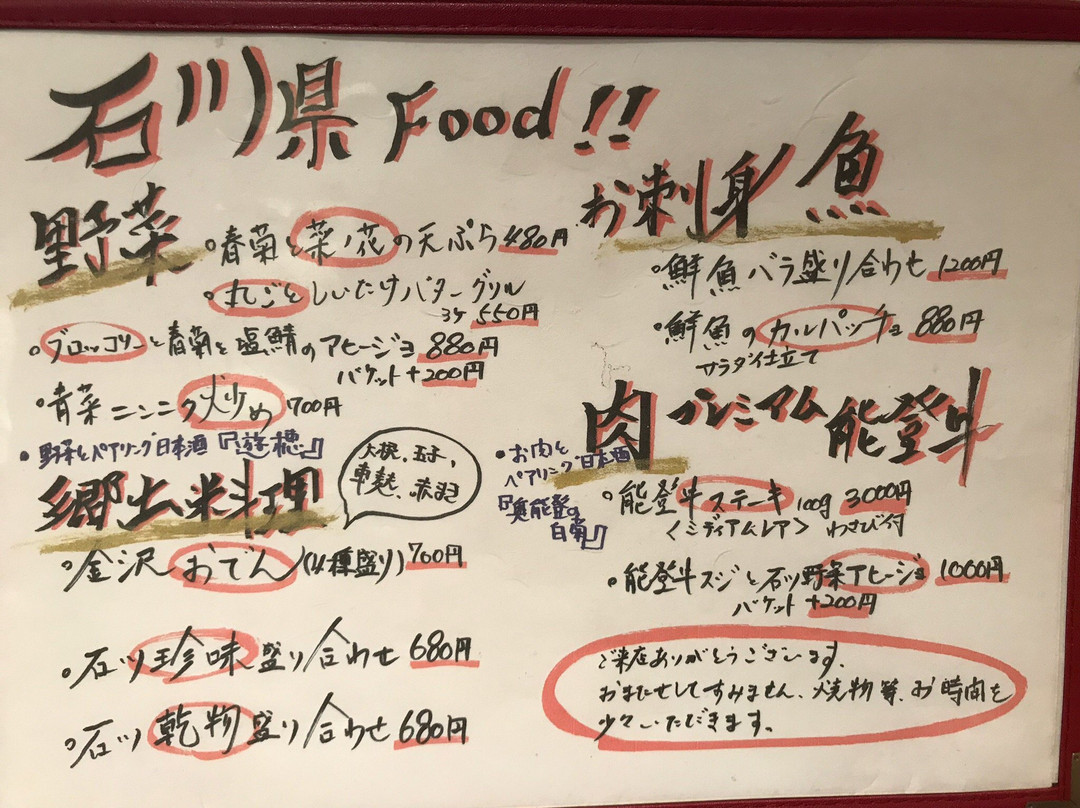 石川県 Food!!
野菜
・春菊と菜ノ花の天ぷら 480円
・丸ごとしいたけバターグリル
3ケ 550円
・ブロッコリーと春菊と塩鯖のアヒージョ 880円
バケット +200円
・青菜ニンニク炒め 700円
・野菜とペアリング日本酒『遊穂』
郷土料理
大根、玉子、
車麩、赤まき
・金沢おでん(4種盛り) 700円
・石川珍味盛り合わせ 680円
・石川乾物盛り合わせ 680円
お刺身 魚
・鮮魚バラ盛り合わせ 1200円
・鮮魚のカルパッチョ 880円
サラダ仕立て
肉 プレミアム能登牛
・お肉と
ペアリング日本酒
『奥能登の
白菊』
・能登牛ステーキ 100g 3000円
<ミディアムレア> わさび付
・能登牛スジと石川野菜アヒージョ 1000円
バケット +200円
ご来店ありがとうございます。
おまたせしてすみません、焼物等、お時間を
少々いただきます。